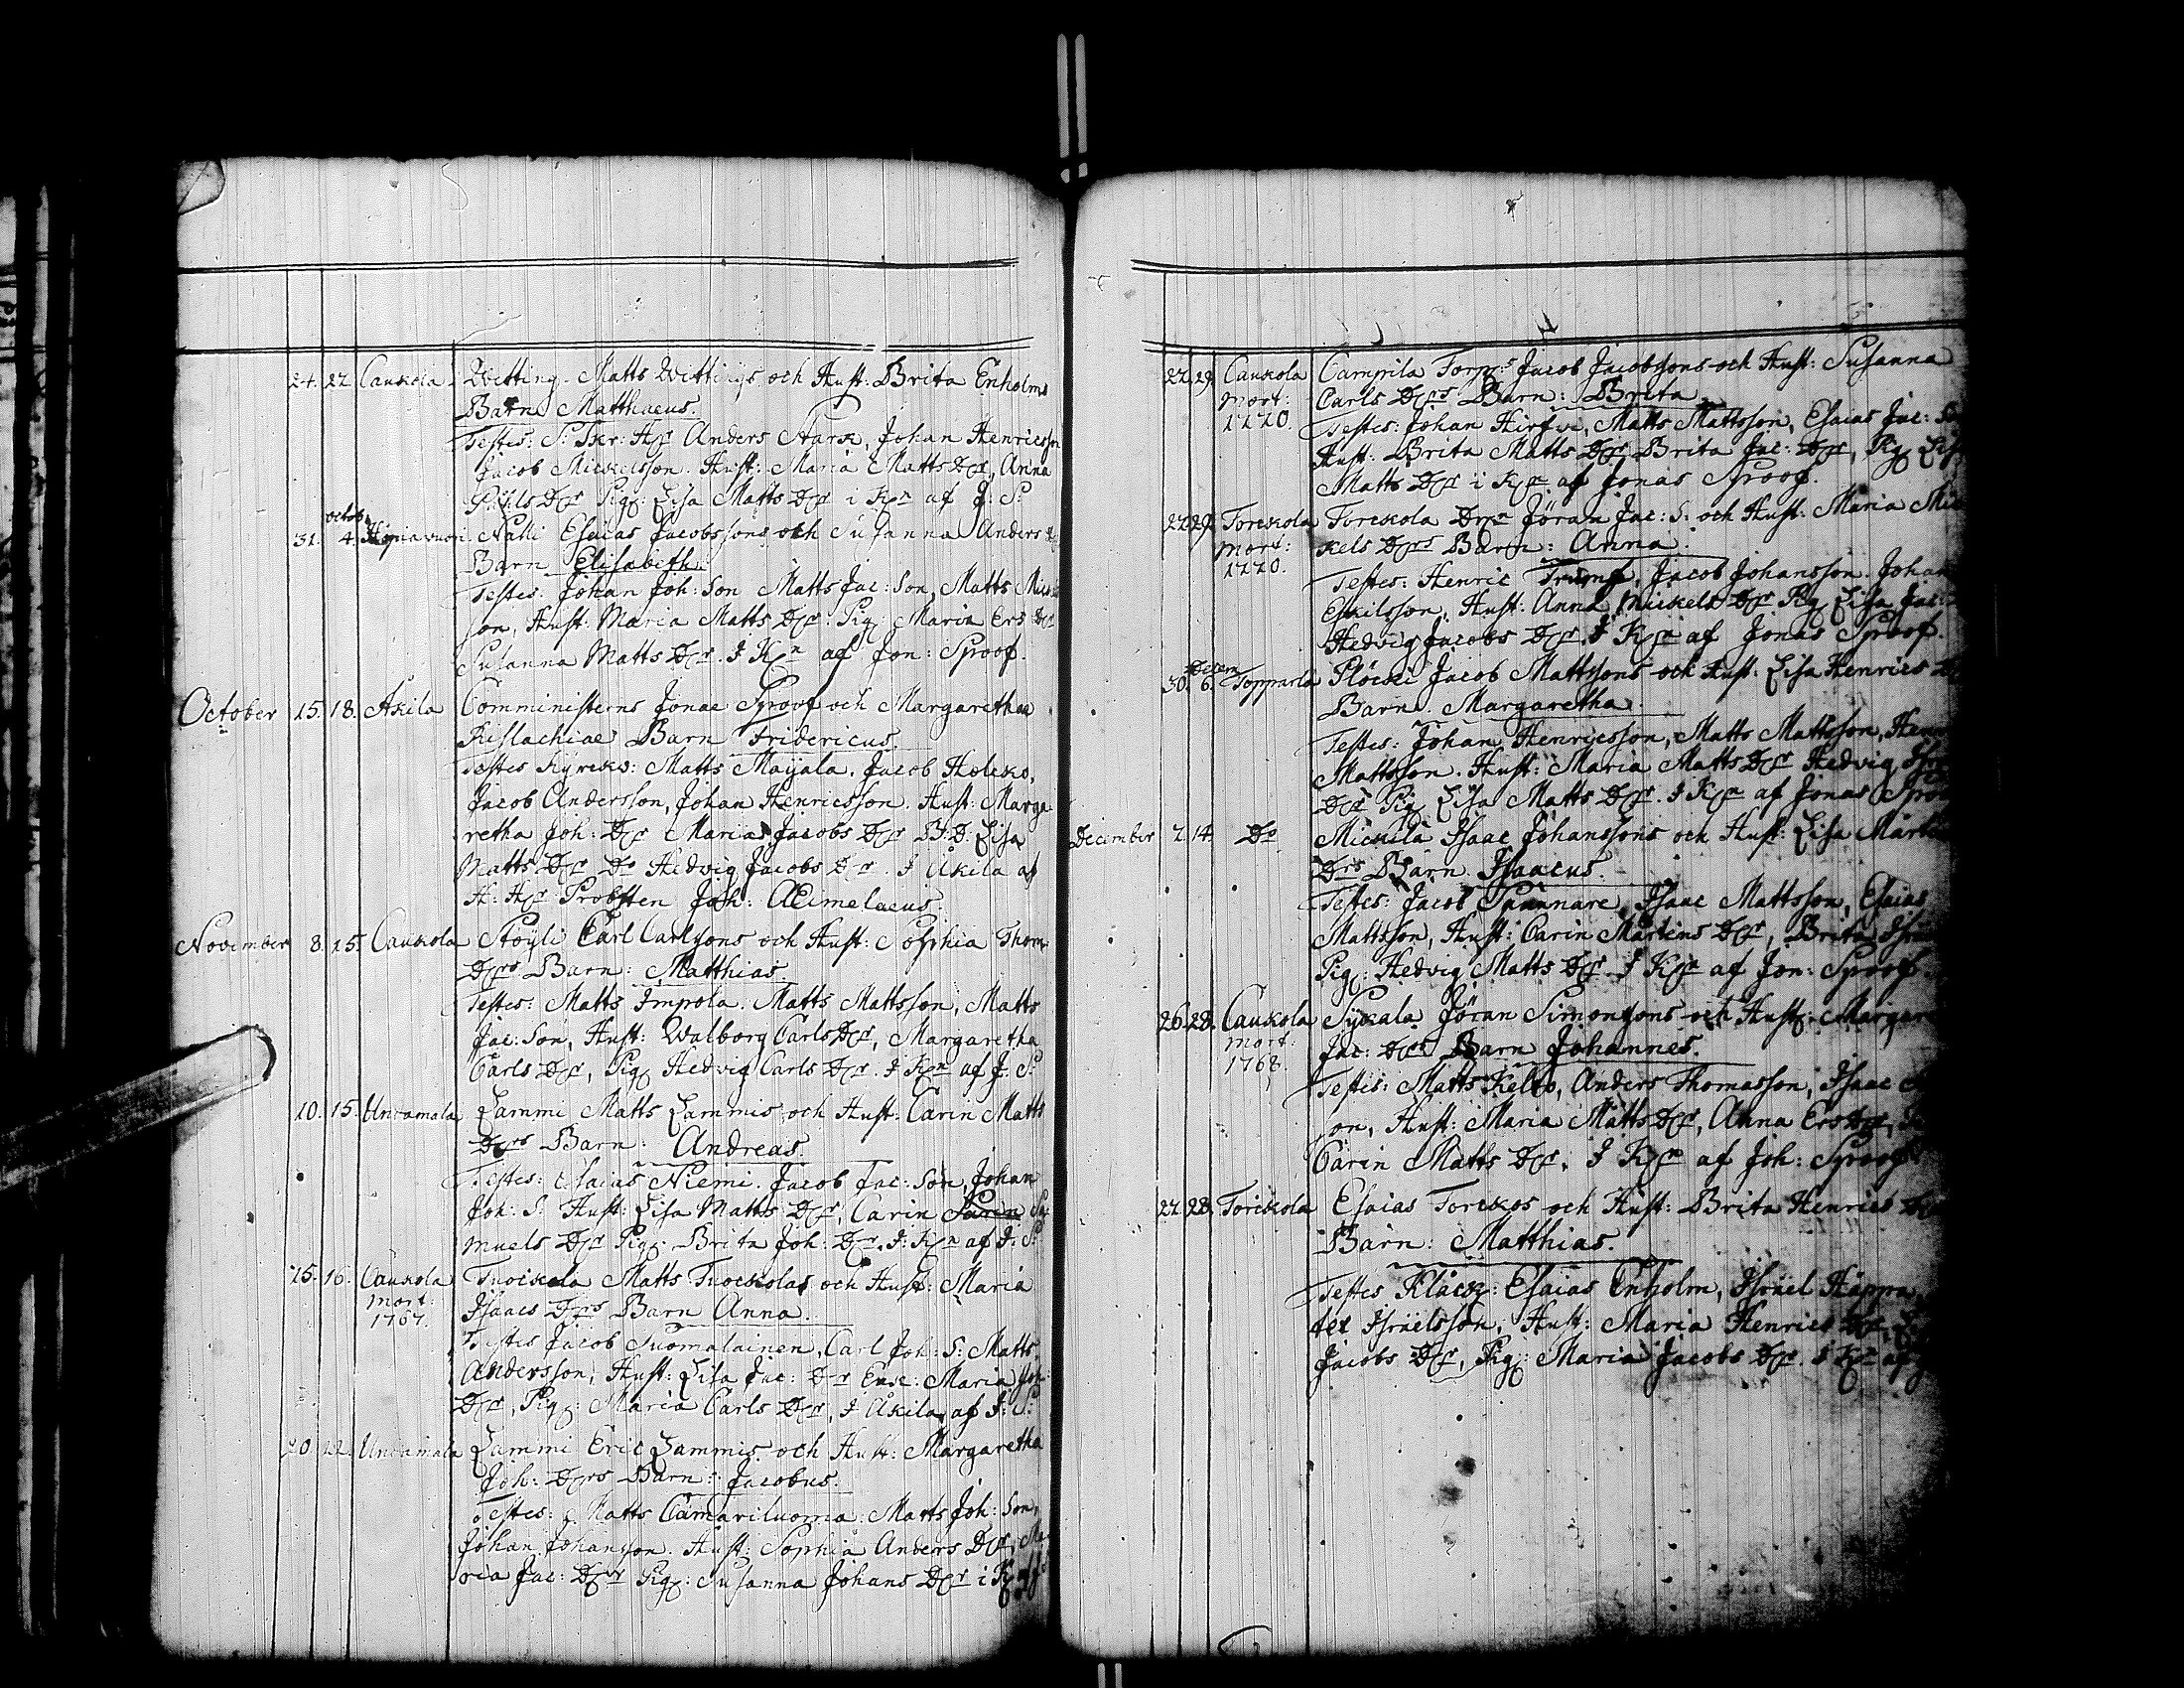 24. 27. Caukola. Wetting. Matts Wettings och Hust: Brita Enholms
Barn Matthaeus.
Testes: S: Skr: Hr Anders Stark, Johan Henricsson
Jacob Mickelsson. Hust: Maria Matts Dr, Anna
Påhls Dr Pig: Lisa Matts Dr i Kn af J: S:
octob:
31. 4. Nalli Esaias Jacobssons och Susanna Anders
Barn Elisabeth.
Testes: Johan Joh: Son Matts Jac: Son, Matts Mickels
son, Hust: Maria Matts Dr. Pig: Maria Ers Dr
Susanna Matts Dr. I Kn af Jon: Sproof.
October 15. 18. Åkila Comministerns Jonae Sproof och Margarethae
Rislachiae Barn Fridericus.
Testes Kyrckv: Matts Maijala. Jacob Holcko,
Jacob Andersson, Johan Henricsson. Hust: Marga
retha Joh: Dr Maria Jacobs Dr B: D: Lisa
Matts Dr Do Hedvig Jacobs Dr. I Åkila af
H: Hr Probsten Joh: Aeimelaeus.
November 8. 15. Caukola Stöyli Carl Carlssons och Hust: Sophia Thom:
Drs Barn: Matthias.
Testes: Matts Impola. Matts Mattsson, Matts
Jac: Son, Hust: Walborg Carls Dr, Margaretha
Carls Dr, Pig: Hedvig Carls Dr. I Kn af J: S:
10. 15. Untamala Lammi Matts Lammis och Hust: Carin Matts
Drs Barn: Andreas.
Testes: Esaias Niemi. Jacob Jac: Son, Johan
Joh: S: Hust: Lisa Matts Dr, Carin Sa
muels Dr Pig: Brita Joh: Dr. I: Kn af J: S:
15. 16. Caukola Tuockola Matts Tuockolas och Hust: Maria
mort: Isaacs Drs Barn Anna.
1767.
Testes Jacob Suomalainen, Carl Joh: S: Matts
Andersson, Hust: Lisa Jac: Dr Enk: Maria Joh:
Dr, Pig: Maria Carls Dr, I Åkila af J: S:
20. 22. Untamala Lammi Eric Lammis och Hust: Margaretha
Joh: Drs Barn: Jacobus.
Testes: Matts Camariluoma: Matts Joh: Son,
Johan Johansson. Hust: Sophia Anders Dr, Ma
ria Jac: Dr Pig: Susanna Johans Dr i K
27. 29. Caukola Campila Torp: Jacob Jacobssons och Hust: Susanna
mort: Carls Drs Barn: Brita.
1770. Testes: Johan Hirfvi, Matts Mattsson, Esaias Jac: So
Hust: Brita Matts Dr, Brita Jac: Dr, Pig Lis
Matts Dr i Kn af Jonas Sproof.
27. 29. Torckola Torckola Drn Jöran Jac: S: och Hust: Maria Mic
mort: kels Drs Barn: Anna.
1770.
Testes: Henric Trumf, Jacob Johansson. Johan
Eskilsson, Hust: Anna Mickels Dr Pig Lisa Jac:
Hedvig Jacobs Dr. I Kn af Jonas Sproof.
Decem
30. 6. Topparla Plöcki Jacob Mattssons och Hust: Lisa Henrics
Barn. Margaretha.
Testes: Johan Henricsson, Matts Mattsson, Henr
Mattsson. Hust: Maria Matts Dr Hedvig
Dr Pig Lisa Matts Dr. I Kn af Jonas Spro
December 7. 14. Do Mickila Isaac Johanssons och Hust: Lisa Mårte
Drs Barn Isaacus.
Testes: Jacob Saunnare, Isaac Mattsson, Esaias
Mattsson, Hust: Carin Mårtens Dr, Brita
Pig: Hedvig Matts Dr. I Kn af Jon: Sproof
26. 28. Caukola Sykala Jöran Simonssons och Hust: Margar
mort: Jac: Drs Barn Johannes.
1768.
Testes: Matts Kelto, Anders Thomasson, Isaac
on, Hust: Maria Matts Dr, Anna Ers Dr,
Carin Matts Dr. I Kn af Joh: Sproof
27. 28. Torckola Esaias Torckos och Hust: Brita Henrics
Barn: Matthias.
Testes Klåck: Esaias Enholm, Israel Häppa,
ter Israelsson, Hust: Maria Henrics Dr,
Jacobs Dr, Pig: Maria Jacobs Dr. I Kn af